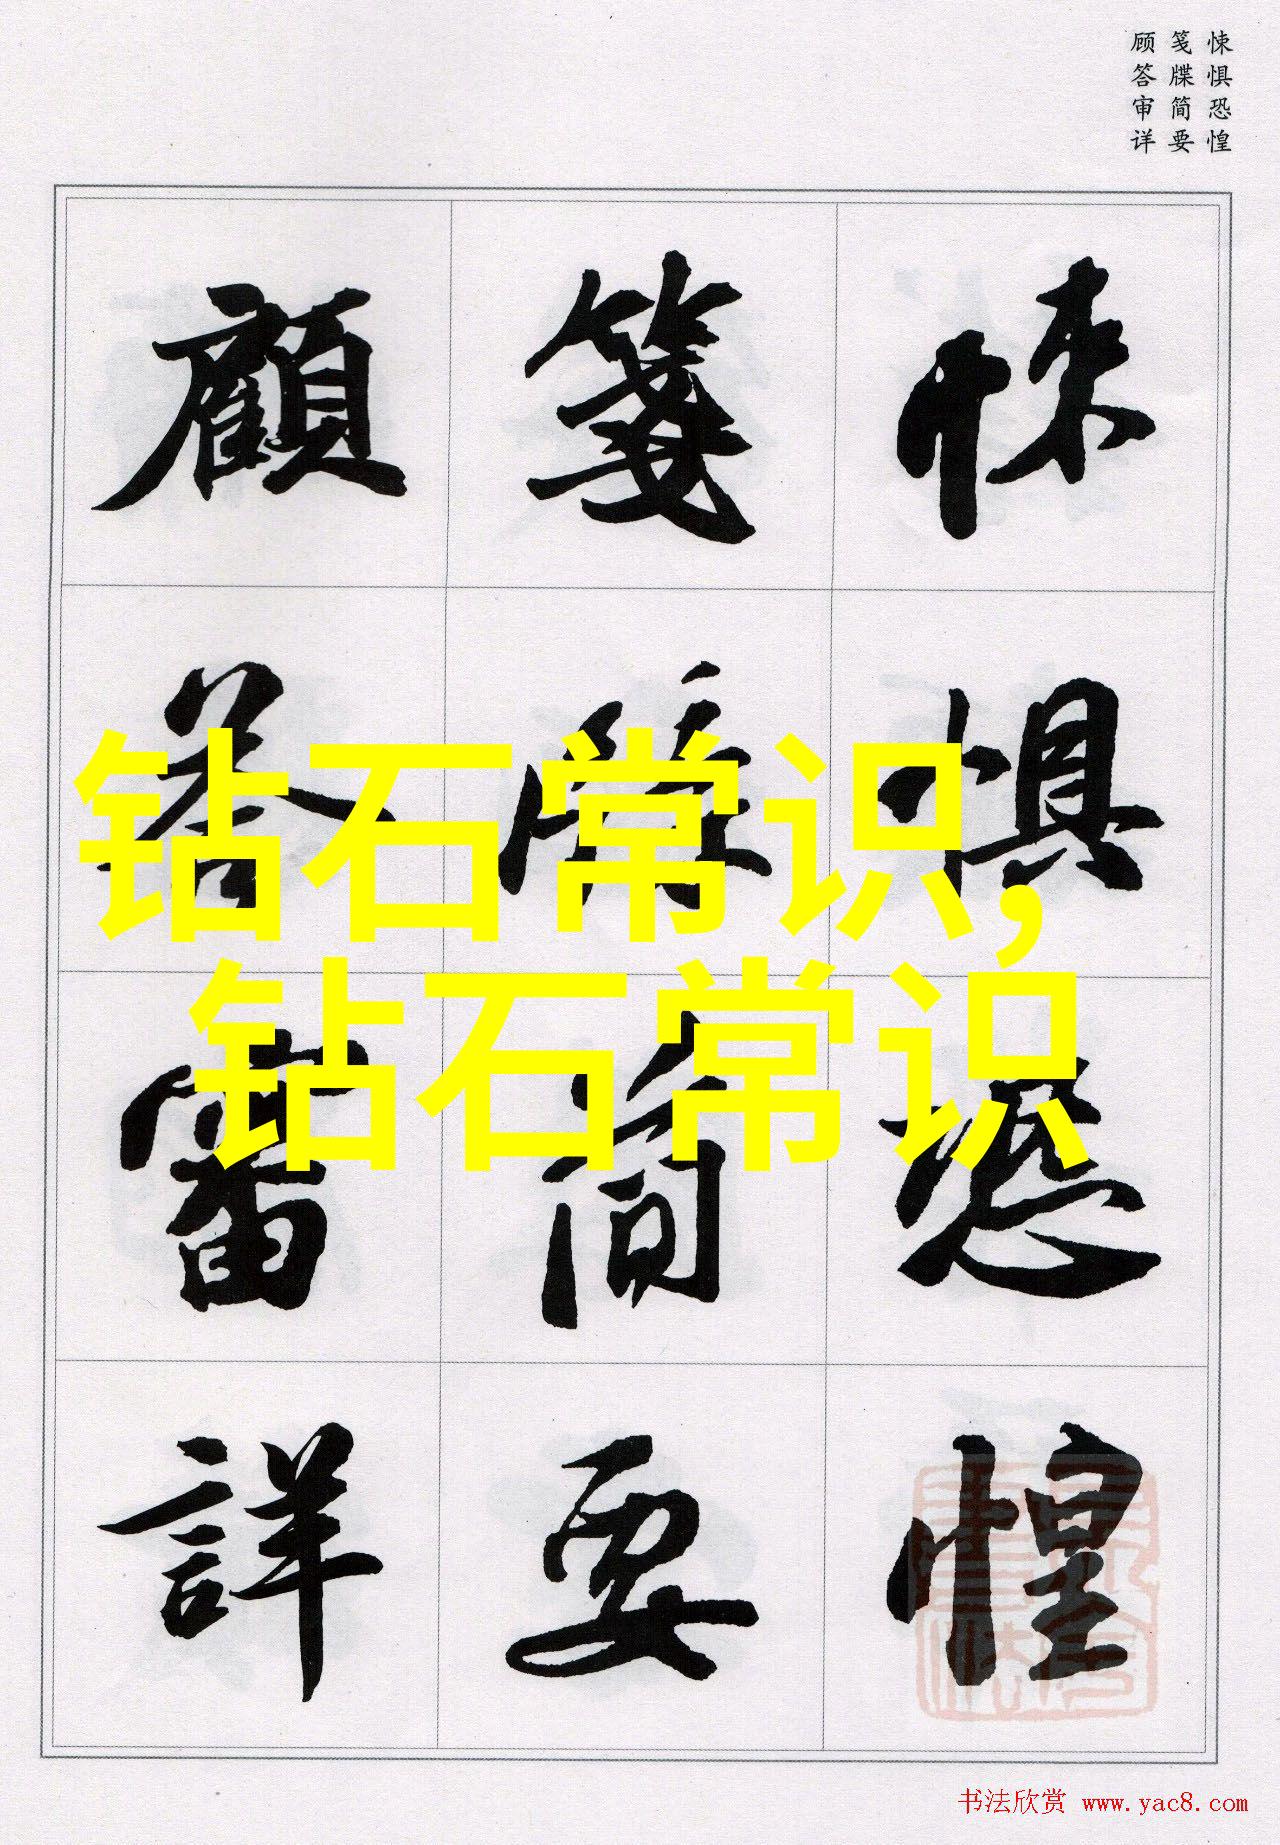 悚惧恐惶
笺牒简要
顾答审详
悚惧恐惶
笺牒简要
顧答審詳
钻石常识,
钻石常识
书法欣赏 www.yac8.com